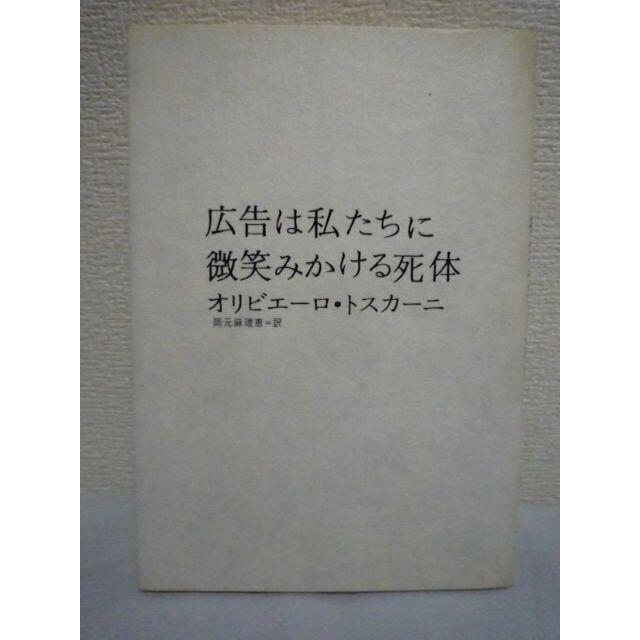 広告は私たちに
微笑みかける死体
オリビエーロ・トスカーニ
岡元麻理恵=訳